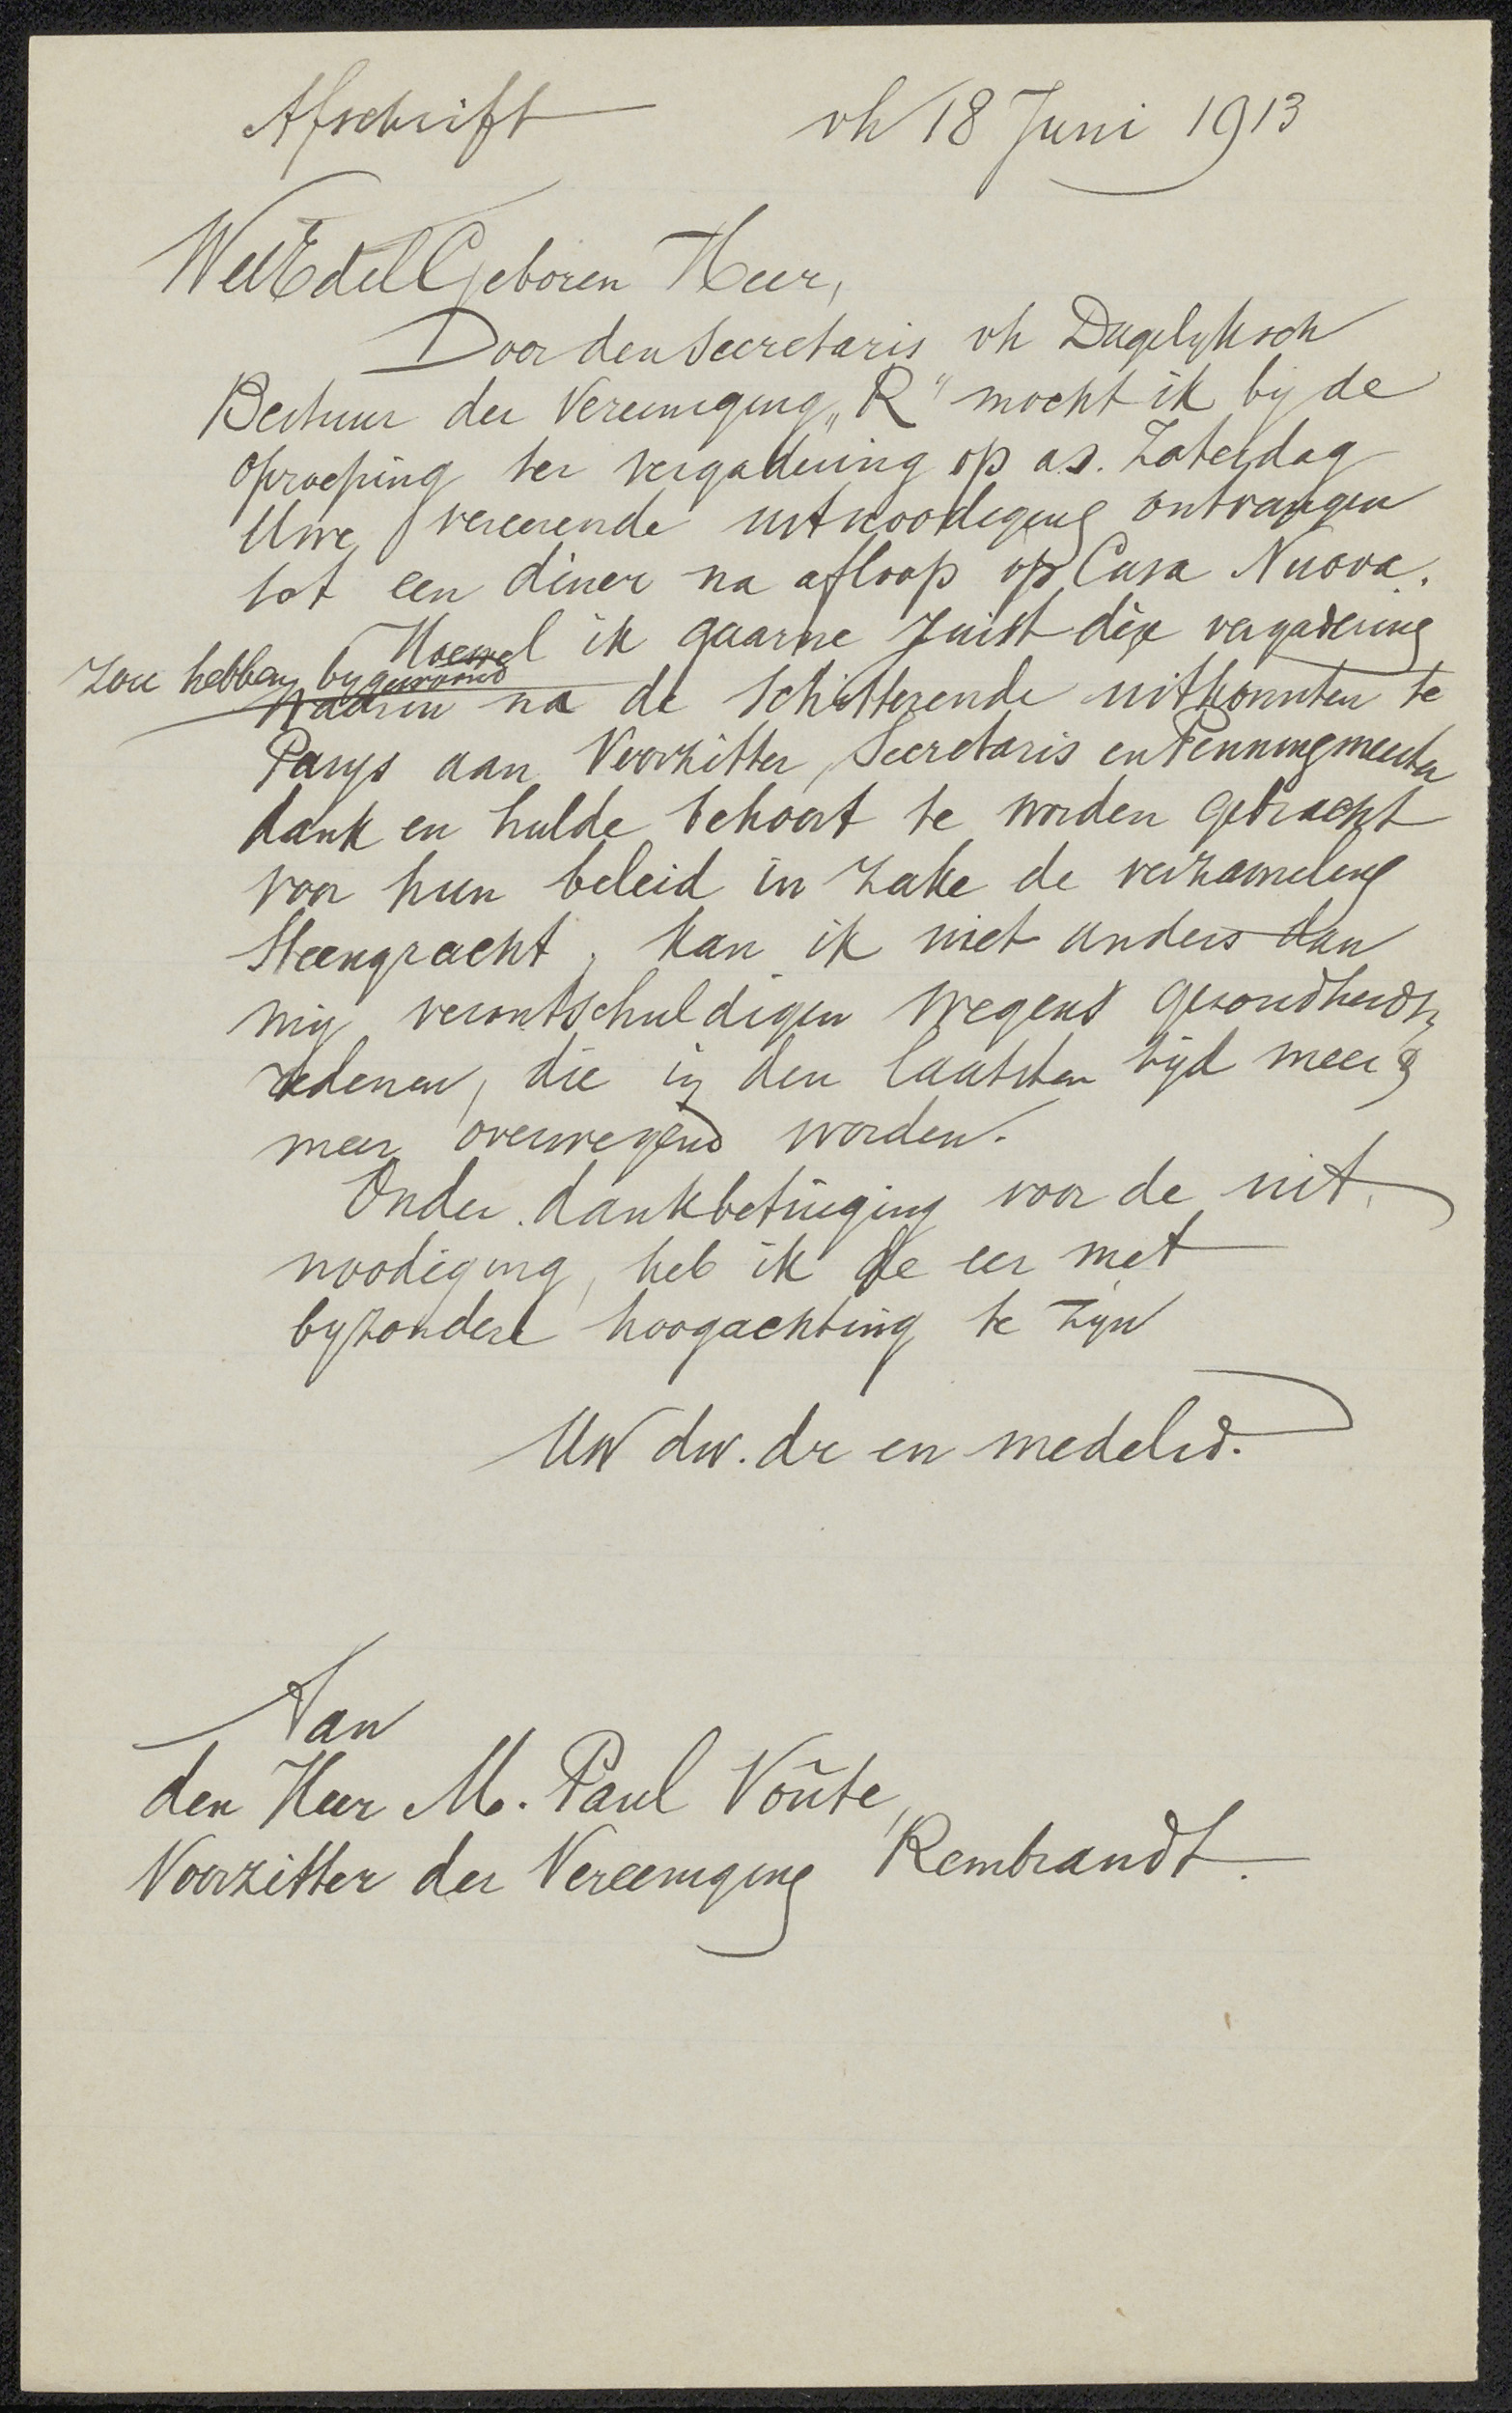 Afschrift vh 18 Juni 1913
WelEdelGeboren Heer,
Door den Secretaris vh Dagelyksch
Bestuur der Vereeniging „R" mocht ik bij de
oproeping ter vergadering op as. Zaterdag
Uwe vereerende uitnoodiging ontvangen
tot een diner na afloop op Casa Nuova.
Hoewel ik gaarne juist dije vergadering
zou hebben bygewoond
waarin na de schitterende uitkomsten te
Parys aan Voorzitter, Secretaris en Penningmeester
dank en hulde behoort te worden gebracht
voor hun beleid in zake de verzameling
Steengracht, kan ik niet anders dan
my verontschuldigen wegens gezondheids-
redenen, die in den laatsten tijd meer &
meer overwegend worden.
Onder dankbetuiging voor de uit-
noodiging, heb ik de eer met
byzondere hoogachting te zyn
Uw dw. dr en medelid.
Aan
den Heer M. Paul Voûte,
Voorzitter der Vereeniging Rembrandt.